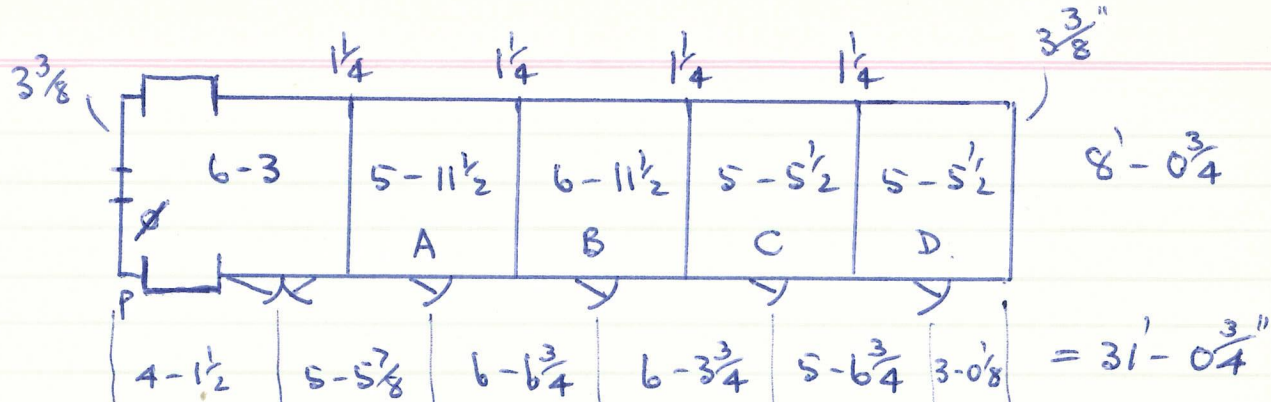 3 3/8 1 1/4 1 1/4 1 1/4 1 1/4 3 3/8"
6-3 5-11 1/2 6-11 1/2 5-5 1/2 5-5 1/2 8'-0 3/4
Ø A B C D.
P
4-1 1/2 5-5 7/8 6-6 3/4 6-3 3/4 5-6 3/4 3-0 1/8 = 31'-0 3/4"